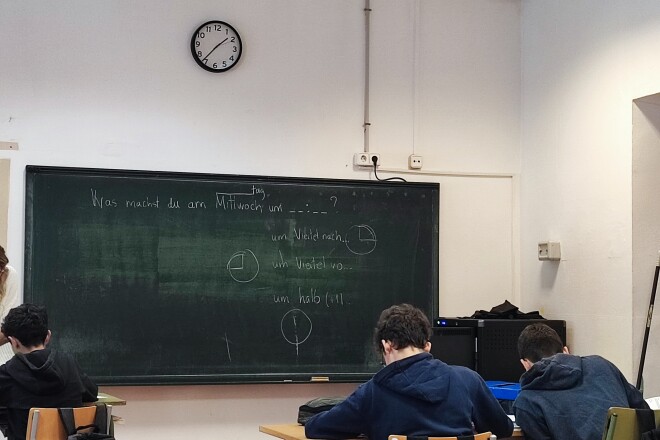 12
1
2
3
4
5
6
7
8
9
10
11
tag
Was machst du am Mittwoch um __:__ ?
um Viertel nach...
um Viertel vo...
um halb (+1)